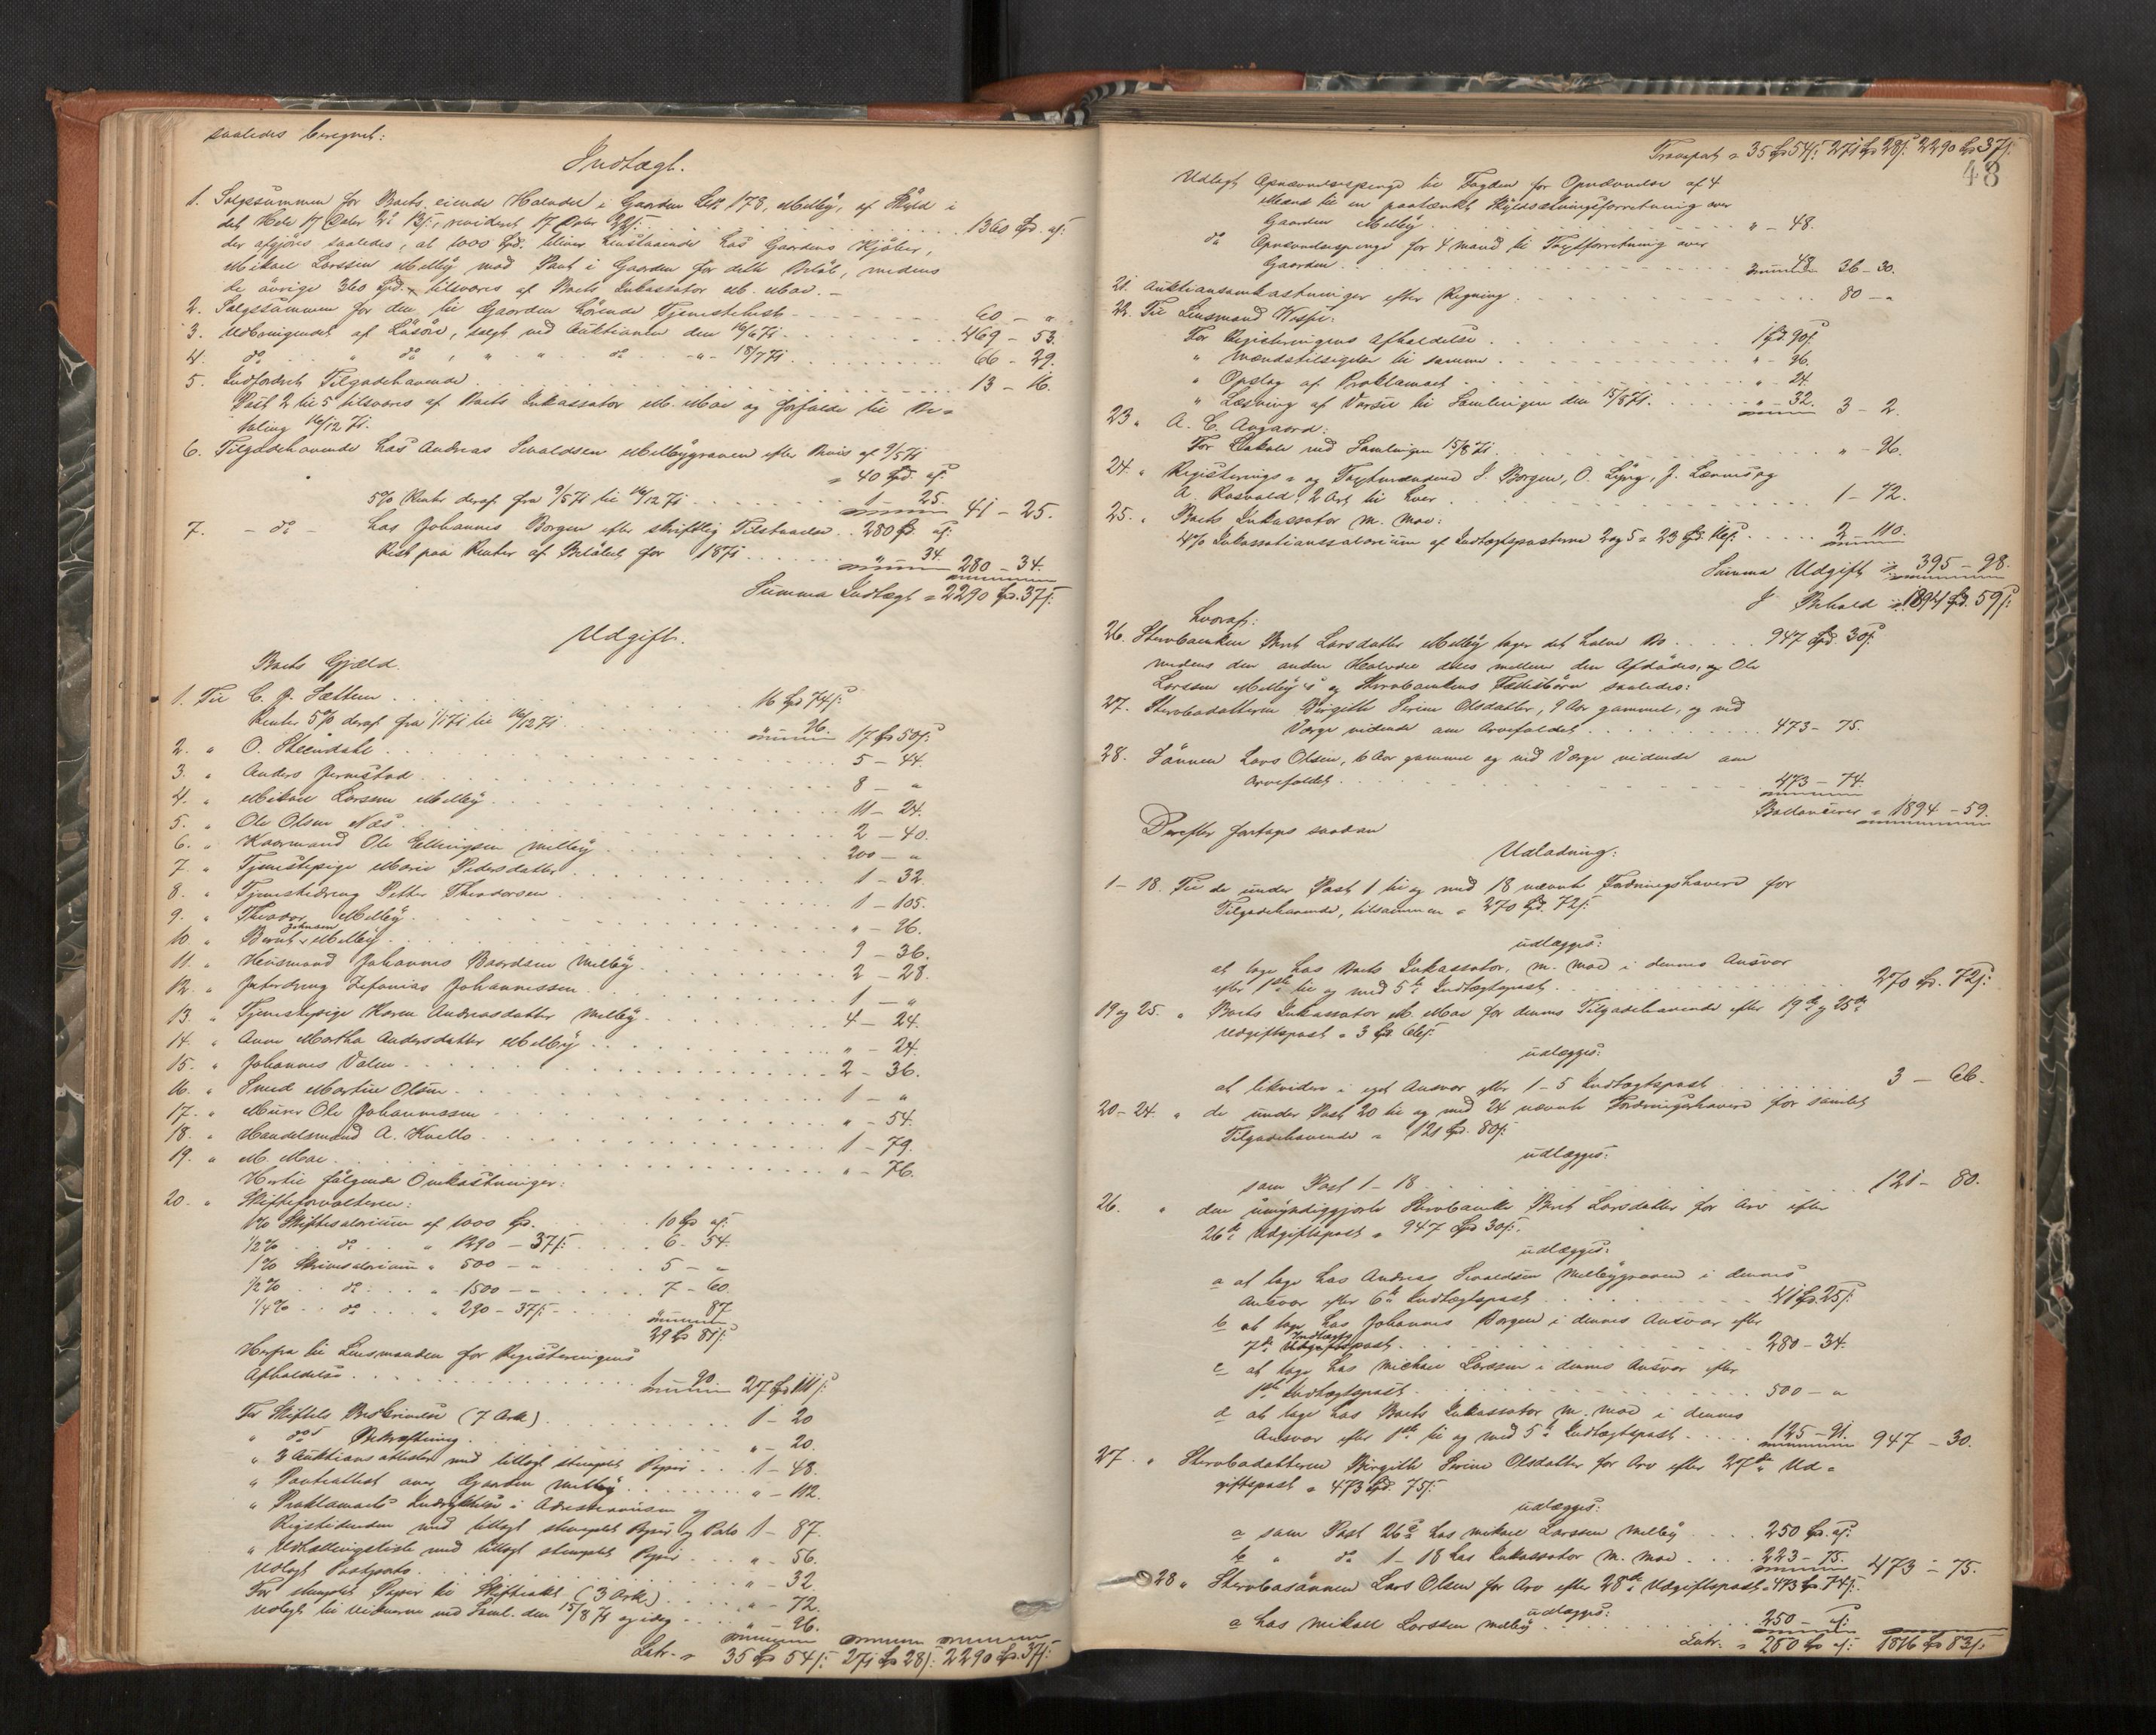 saaledes beregnet:
Indtægt.
1. Salgssummen for Boets eiende Halvdel i Gaarden 178, Melby, af Skyld i
det Hele 17 2 13 ß, revideret 17 . . . 1360 Spd. „ ß:
der afgjøres saaledes, at 1000 Spd. bliver henstaaende hos Gaardens Kjøber,
Mikael Larssen Melby mod Pant i Gaarden for dette Beløb, medens
de øvrige 360 Spd. tilsvares af Boets Inkassator M. Moe. -
2. Salgssummen for den til Gaarden hørende - - - 60 - „
3. Udbringendet af Løsøre, solgt ved Auktionen den 16/6 71 . . . 469 - 53.
4. do „ do , „ „ do - „ - 18/7 71 . . . 66 - 29.
5. Indfordret Tilgodehavende . . . 13 - 16.
Post 2 til 5 tilsvares af Boets Inkassator M. Moe og forfalder til Be=
taling 16/12 71.
6. Tilgodehavende hos Andreas Sivaldsen Melbygraven efter Bevis af 9/5 71
= 40 Spd. „ ß:
5% Renter deraf fra 9/5 71 til 16/12 71 . . . 1 - 25. 41 - 25.
7. - do - hos Johannes Borgen efter skriftlig Tilstaaelse . . 280 Spd. „ ß:
Rest paa Renter af Beløbet for 1871 . . . „ - 34. 280 - 34.
Summa Indtægt = 2290 Spd. 37 ß:
Udgift.
Boets Gjæld.
1. Til C. P. Sættem . . . 16 Spd 74 ß:
Renter 5% deraf fra 1/1 71 til 16/12 71 . . . 96. 17 Spd 50 ß:
2. „ O. Steendahl . . . 5 - 44.
3. „ Anders Jermstad . . . 8 - „
4. „ Mikael Larssen Melby . . . 11 - 24.
5. „ Ole Olsen Næs . . . 2 - 40.
6. „ Kaarmand Ole Ellingsen Melby . . . 200 - „
7. „ Tjenestepige Marie Pedersdatter . . . 1 - 32
8. „ Tjenestedreng Petter Theodorsen . . . 1 - 105.
9. „ Theodor Melby . . . „ - 96.
10. „ Bernt Johnsen Melby . . . 9 - 36.
11. „ Huusmand Johannes Baardsen Melby . . . 2 - 28.
12. „ Zefanias Johannessen . . . 1 - „
13. „ Tjenestepige Karen Andreasdatter Melby . . . 4 - 24.
14. „ Anne Martha Andersdatter Melby . . . „ - 24.
15. „ Johannes Valen . . . 2 - 36.
16. „ Smed Martin Olsen . . . 1 - „
17. „ Murer Ole Johannessen . . . „ - 54.
18. „ Handelsmand A. Kvello . . . 1 - 79.
19. „ M. Moe . . . „ - 76.
Hertil følgende Omkostninger:
20. „ Skifteforvalteren:
1% Skiftesalarium af 1000 Spd. . . . 10 Spd „ ß:
1/2% . . do . . „ 1290 - 37 ß: . . . 6 - 54.
1% Skriversalarium „ 500 - „ . . . 5 - „
1/2% . . do . . „ 1500 - - . . . 7 - 60
1/4% . . do . . „ 290 - 37 ß: - . . . „ 87
29 Spd 81 ß:
Herfra til Lensmanden for Registreringens
Afholdelse . . . 1 - 90. 27 Spd 111 ß:
For Skiftets Beskrivelse (7 Ark) . . . 1 - 20
„ dos Bekræftning . . . „ - 20.
„ 3 Auktionsattester med tillagt stemplet Papir . . . 1 - 48.
„ Panteattest over Gaarden Melby . . . „ - 112.
„ Proklamaets Indrykkelse i Adresseavisen og
Rigstidenden med tillagt stemplet Papir og Porto 1 - 87.
„ Udkastningsliste med tillagt stemplet Papir . . . „ - 56.
Udlagt Postporto . . . „ - 32.
For stemplet Papir til Skifteakt (3 Ark) . . . „ - 72.
Udlagt til Vidnerne ved Saml. den 15/8 71 og idag . . . „ - 96.
Latr. = 35 Spd 54 ß: 271 Spd 28 ß: 2290 Spd. 37 ß:
Transport = 35 Spd 54 ß: 271 Spd 28 ß: 2290 Spd 37 ß:
48
Udlagt Opnævnelsespenge til Fogden for Opnævnelse af 4
Mænd til en paatænkt Skyldsætningsforretning over
Gaarden Melby . . . „ - 48.
do Opnævnelsespenge for 4 mænd til Taxtforretning over
Gaarden . . . 48. 36 - 30.
21. Auktionsomkostninger efter Regning . . . 80 - „
22. Til Lensmand Wessel:
For Registreringens Afholdelse . . . 1 Spd 90 ß
„ Mændstilsigelse til samme . . . „ - 96.
„ Opslag af Proklamaet . . . „ - 24.
„ Læsning af Varsel til Samlingen den 15/8 71. . . . „ - 32. 3 - 2.
23 „ A. C. Augaard:
For Lokale ved Samlingen 15/8 71. . . . „ - 96.
24. „ Registrerings= og Taxtmændene J. Borgen, O. Lyng, J. Lænnes og
A. Rosvold, 2 Ort til hver . . . 1 - 72.
25. „ Boets Inkassator M. Moe:
4% Inkassationssalarium af Indtægtsposterne 2 og 5 = 23 Spd. 16 ß: . . . 2 - 110.
Summa Udgift = 395 - 98.
I Behold = 1894 Spd. 59 ß:
hvoraf:
26. Stervboenken Berit Larsdatter Melby tager det halve Bo . . . 947 Spd. 30 ß:
medens den anden Halvdel deles mellem den Afdødes, og Ole
Larssen Melby's og Stervboenkens Fællesbørn saaledes:
27. Stervbodatteren Birgith Serine Olsdatter, 9 Aar gammel, og ved
Værge vidende om Arvefaldet . . . 473 - 75.
28. Sønnen Lars Olsen, 6 Aar gammel og ved Værge vidende om
Arvefaldet . . . 473 - 74.
Ballancerer = 1894 - 59.
Derefter foretages saadan
Udlodning:
1 - 18. Til de under Post 1 til og med 18 nævnte Fordringshavere for
Tilgodehavende, tilsammen = 270 Spd. 72 ß:
udlægges:
at tage hos Boets Inkassator, M. Moe i dennes Ansvar
efter 1ste til og med 5te Indtægtspost . . . 270 Spd. 72 ß:
19 og 25. „ Boets Inkassator M. Moe for dennes Tilgodehavende efter 19de og 25de
Udgiftspost = 3 Spd. 66 ß:
udlægges:
at likvidere i eget Ansvar efter 1 - 5 Indtægtspost . . . 3 - 66.
20 - 24. „ de under Post 20 til og med 24 nævnte Fordringshavere for samlet
Tilgodehavende = 121 Spd. 80 ß:
udlægges:
som Post 1 - 18 . . . 121 - 80.
26. „ den umyndiggjorte Stervboenke Berit Larsdatter for Arv efter
26de Udgiftspost = 947 Spd 30 ß:
udlægges:
a at tage hos Andreas Sivaldsen Melbygraven i dennes
Ansvar efter 6te Indtægtspost . . . 41 Spd. 25 ß:
b at tage hos Johannes Borgen i dennes Ansvar efter
7de Indtægts Udgiftspost . . . 280 - 34.
c at tage hos Michael Larssen i dennes Ansvar efter
1ste Indtægtspost . . . 500 - „
d at tage hos Boets Inkassator M. Moe i dennes
Ansvar efter 1ste til og med 5te Indtægtspost . . . 125 - 91. 947 - 30.
27. „ Stervbodatteren Birgith Serine Olsdatter for Arv efter 27de Ud=
giftspost = 473 Spd. 75 ß:
udlægges:
a som Post 26 c hos Mikael Larssen Melby . . . 250 Spd. „ ß:
b „ do 1 - 18 hos Inkassator M. Moe . . . 223 - 75. 473 - 75.
28 „ Stervbosønnen Lars Olsen for Arv efter 28de Udgiftspost = 473 Spd 74 ß:
udlægges:
a hos Mikael Larssen Melby . . . 250 - „ ß:
Latr. = 250 Spd „ ß: 1816 Spd 83 ß: